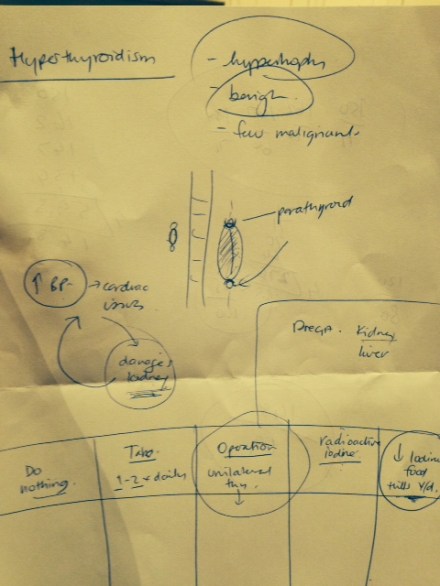 Hyperthyroidism
- hypertrophy
- benign.
- few malignant.
parathyroid
↑ BP → cardiac
issues
damages
kidney
Kidney
liver
Do
nothing.
Tabs.
1-2 x daily
Operation
unilateral
thy.
radioactive
iodine
↓ Iodine
food
Hills Y/d.